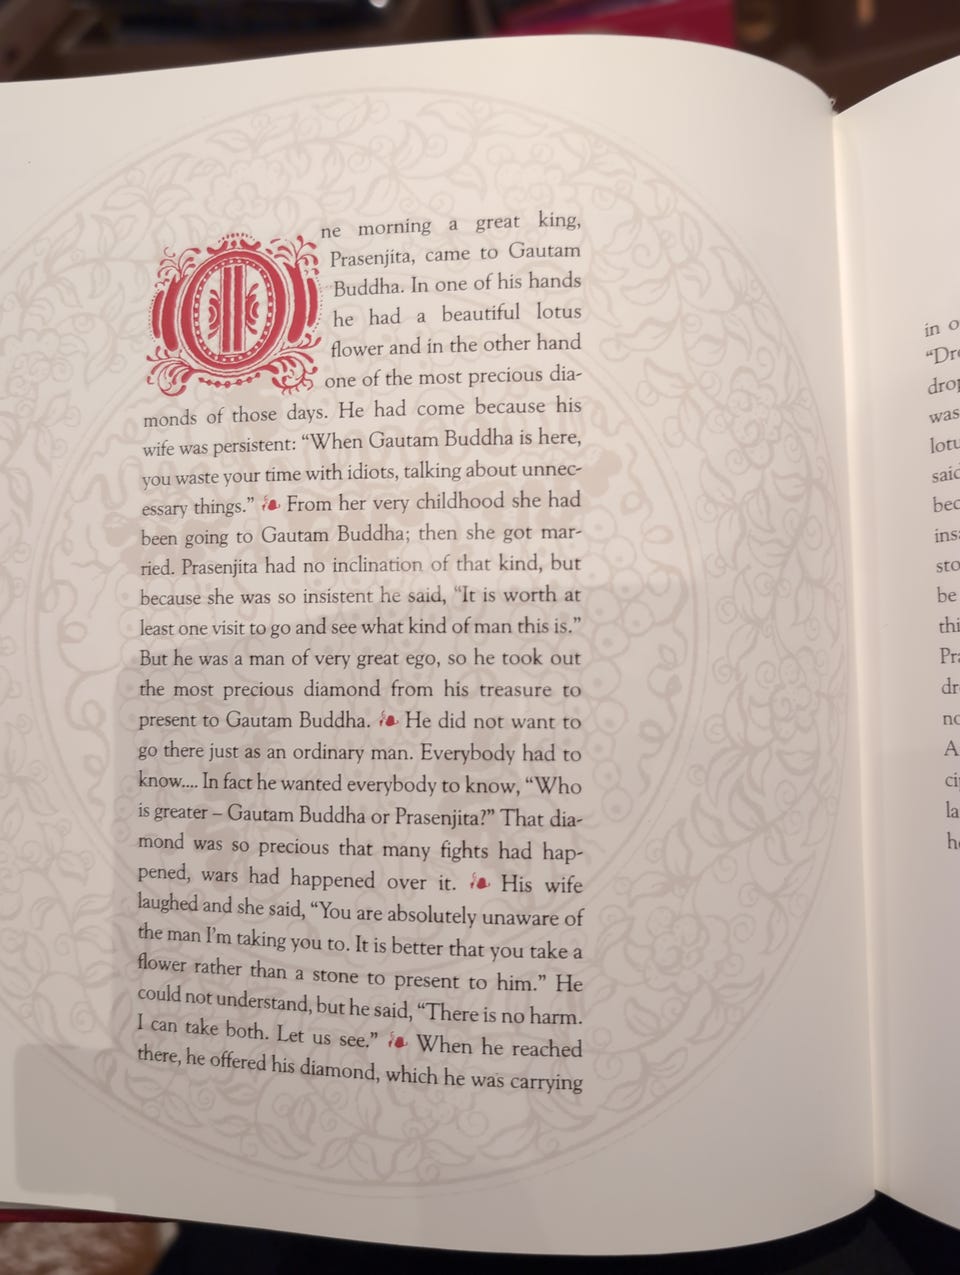 One morning a great king,
Prasenjita, came to Gautam
Buddha. In one of his hands
he had a beautiful lotus
flower and in the other hand
one of the most precious dia-
monds of those days. He had come because his
wife was persistent: “When Gautam Buddha is here,
you waste your time with idiots, talking about unnec-
essary things.” From her very childhood she had
been going to Gautam Buddha; then she got mar-
ried. Prasenjita had no inclination of that kind, but
because she was so insistent he said, “It is worth at
least one visit to go and see what kind of man this is.”
But he was a man of very great ego, so he took out
the most precious diamond from his treasure to
present to Gautam Buddha. He did not want to
go there just as an ordinary man. Everybody had to
know.... In fact he wanted everybody to know, “Who
is greater – Gautam Buddha or Prasenjita?” That dia-
mond was so precious that many fights had hap-
pened, wars had happened over it. His wife
laughed and she said, “You are absolutely unaware of
the man I’m taking you to. It is better that you take a
flower rather than a stone to present to him.” He
could not understand, but he said, “There is no harm.
I can take both. Let us see.” When he reached
there, he offered his diamond, which he was carrying
in
was
said
be